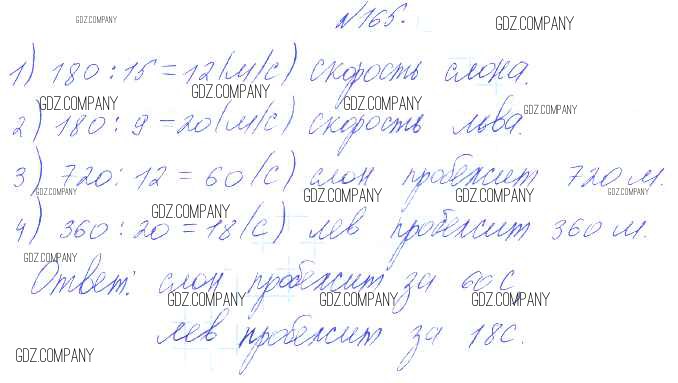 №165.
GDZ.COMPANY GDZ.COMPANY
1) 180 : 15 = 12 (м/с) скорость слона.
GDZ.COMPANY GDZ.COMPANY GDZ.COMPANY GDZ.COMPANY
2) 180 : 9 = 20 (м/с) скорость льва.
3) 720 : 12 = 60 (с) слон пробежит 720 м.
GDZ.COMPANY GDZ.COMPANY GDZ.COMPANY GDZ.COMPANY GDZ.COMPANY
4) 360 : 20 = 18 (с) лев пробежит 360 м.
GDZ.COMPANY
Ответ: слон пробежит за 60 с,
GDZ.COMPANY GDZ.COMPANY GDZ.COMPANY
лев пробежит за 18 с.
GDZ.COMPANY